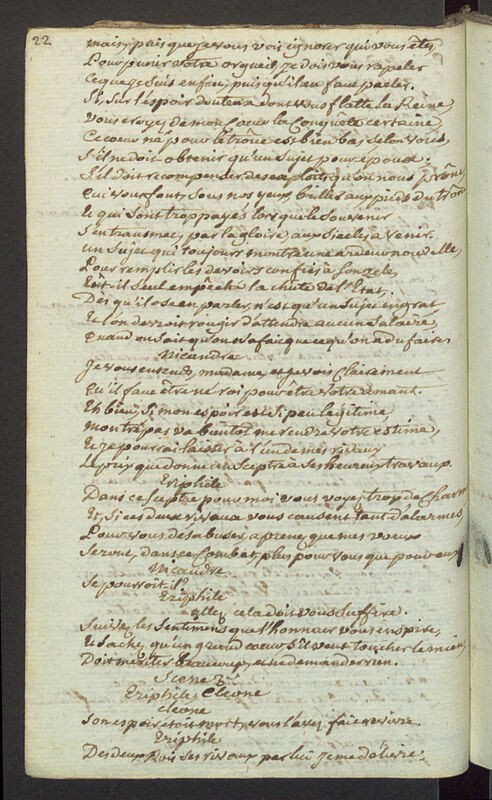 22
mais, puis que je vous vois ignorer qui vous êtes,
Pour punir votre orgueil, je dois vous rapeler
Ce que je suis enfin, puis qu'il en faut parler.
Si, sur l'espoir douteux dont vous flatte la Reine,
vous croyez de mon coeur la Conquête certaine,
Ce coeur né pour le trône est bien bas selon vous,
S'il ne doit obtenir qu'un Sujet pour époux.
S'il doit récompenser des exploits qu'on nous prône,
qui vous font, sous nos yeux, briller aux pieds du trône
Et qui sont trop payés lors que le Souvenir
S'en transmet, par la gloire, aux Siecles à venir.
un Sujet qui toujours montre une ardeur nouvelle,
Pour remplir les devoirs confiés à son zele,
Eût-il seul empêché la chûte de l'Etat,
Dès qu'il ose en parler, n'est qu'un Sujet ingrat
Et l'on devroit rougir d'attendre aucun Salaire,
quand on sait qu'on n'a fait que ce qu'on a dû faire.
Nicandre
Je vous entends, madame, et je vois clairement
qu'il faut être né roi pour être votre amant.
Eh bien, Si mon espoir est si peu légitime,
mon trépas va bientôt me rendre votre estime,
Et je pourrai laisser à l'un de mes rivaux
Le prix que donne un Sceptre à Ses heureux travaux.
Eriphile
Dans ce Sceptre pour moi vous voyez trop de charmes
Et, si ces deux rivaux vous causent tant d'alarmes,
Pour vous désabuser, aprenez que mes voeux
Seront, dans ce Combat, plus pour vous que pour eux
Nicandre
Se pourroit-il?
Eriphile
allez, cela doit vous Suffire.
Suivez les Sentimens que l'honneur vous inspire,
Et Sachez qu'un grand coeur S'il veut toucher le mien,
Doit mériter beaucoup, et ne demander rien.
Scene
Eriphile, Cléone
Cléone
Son espoir étoit mort, vous l'avez fait revivre.
Eriphile
Des deux Rois Ses rivaux par lui je me délivre.